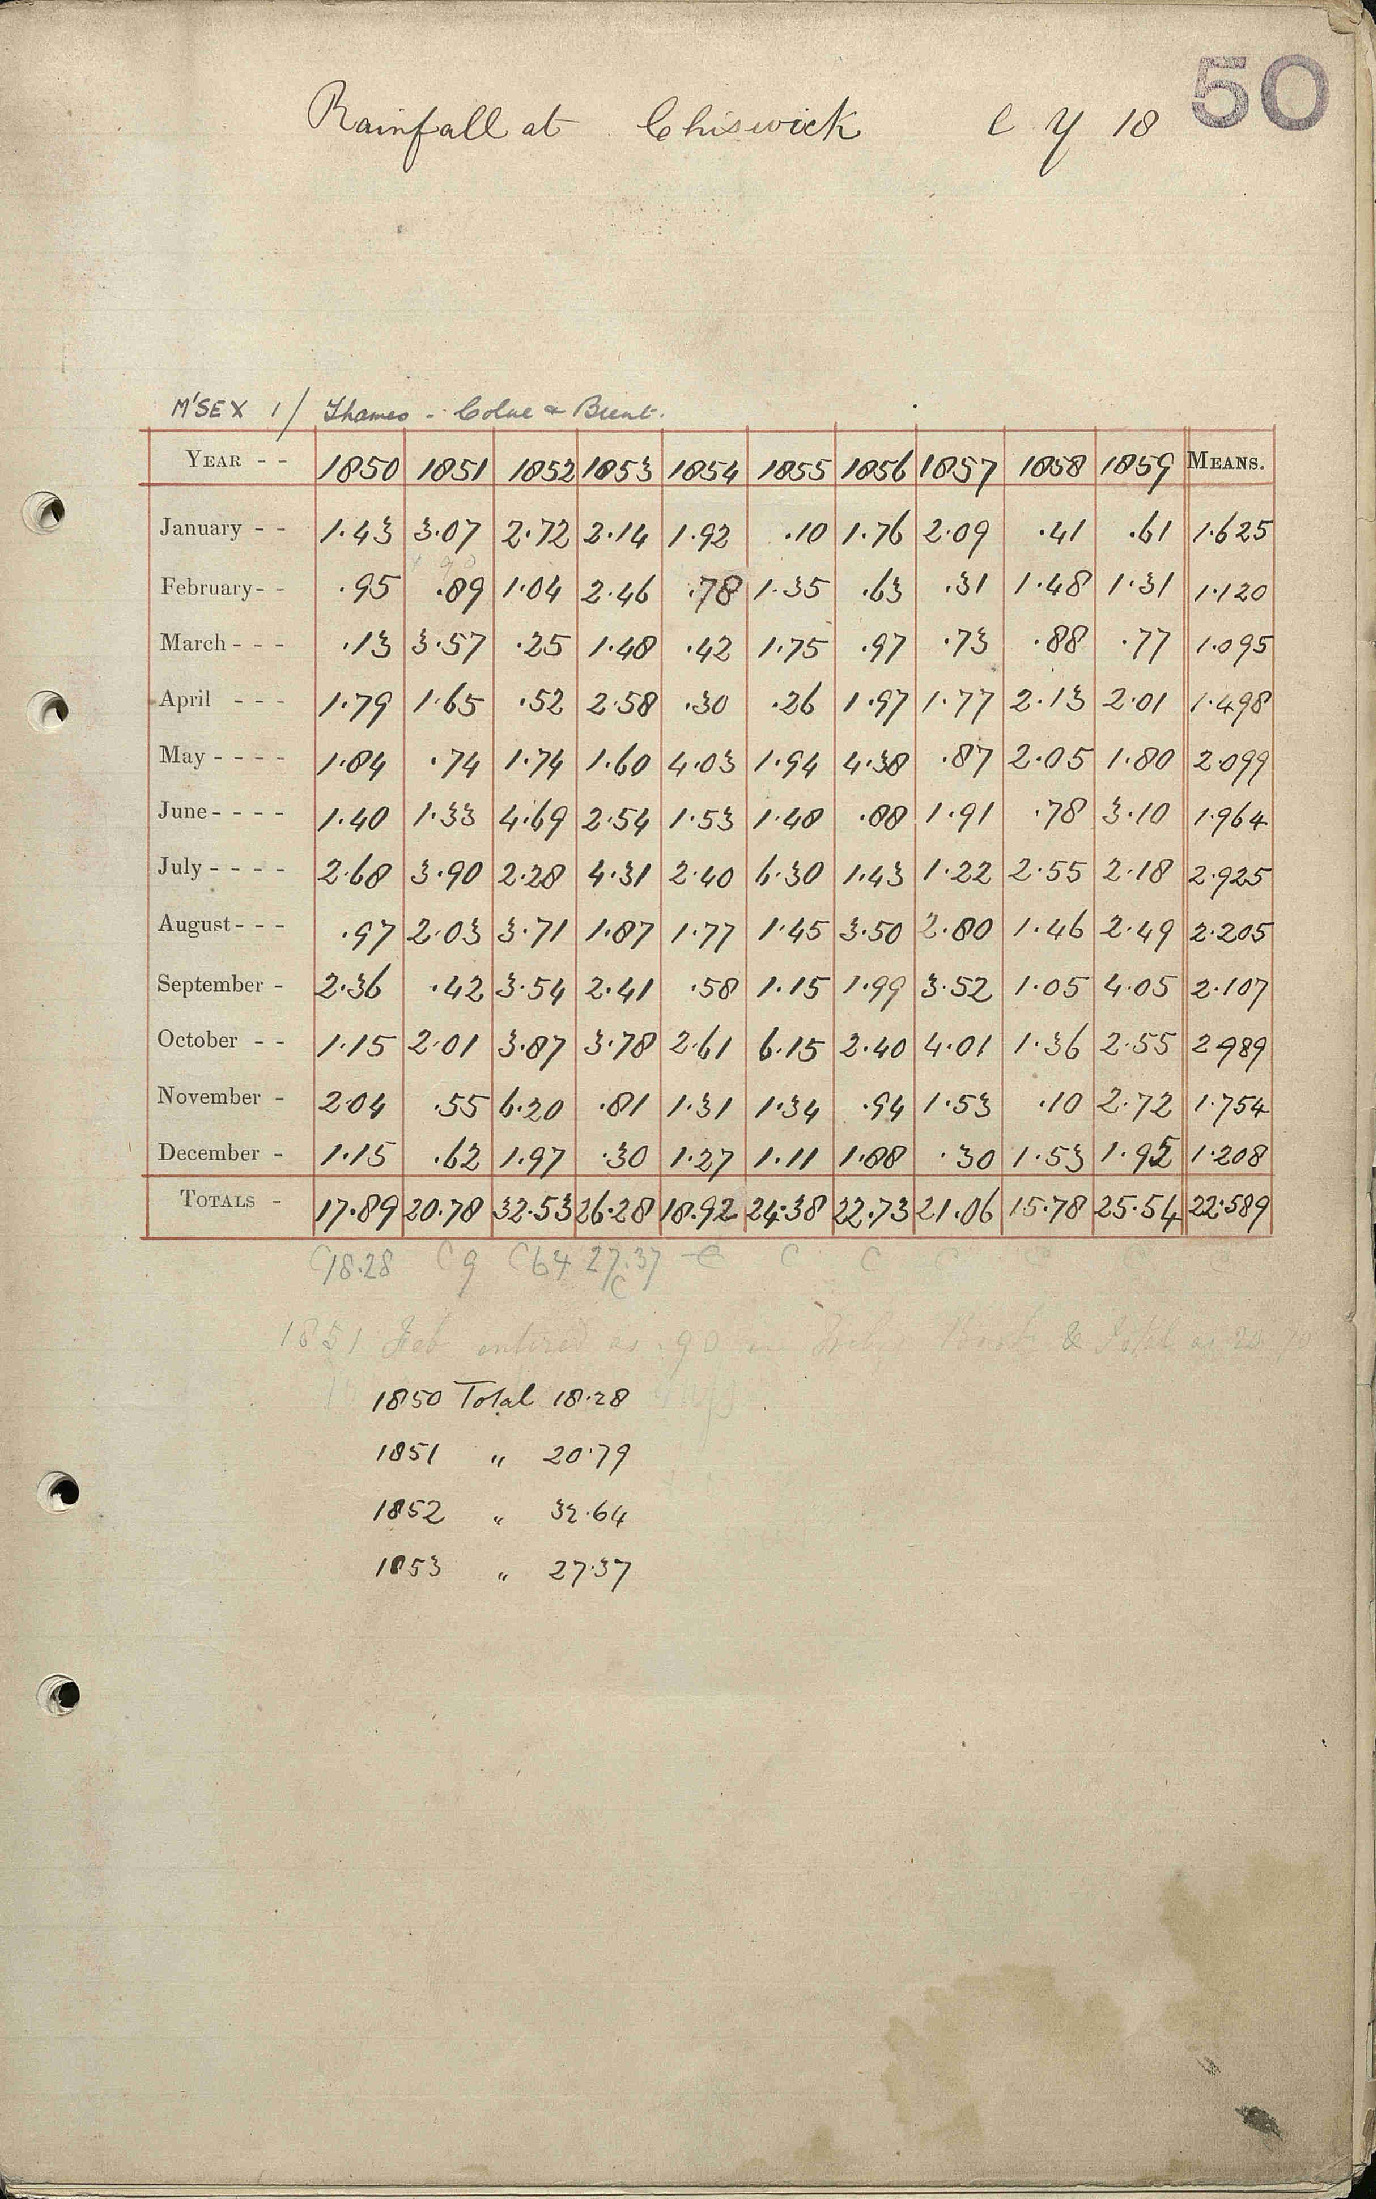 50
Rainfall at Chiswick C Y 18
M'SEX 1/ Thames - Colne & Brent.
YEAR - - 1850 1851 1852 1853 1854 1855 1856 1857 1858 1859 MEANS.
January - - 1.43 3.07 2.72 2.14 1.92 .10 1.76 2.09 .41 .61 1.625
February - - .95 .89 1.04 2.46 .78 1.35 .63 .31 1.48 1.31 1.120
March - - - .13 3.57 .25 1.48 .42 1.75 .97 .73 .88 .77 1.095
April - - - 1.79 1.65 .52 2.58 .30 .26 1.97 1.77 2.13 2.01 1.498
May - - - - 1.84 .74 1.74 1.60 4.03 1.94 4.38 .87 2.05 1.80 2.099
June - - - - 1.40 1.33 4.69 2.54 1.53 1.48 .88 1.91 .78 3.10 1.964
July - - - - 2.68 3.90 2.28 4.31 2.40 6.30 1.43 1.22 2.55 2.18 2.925
August - - - .97 2.03 3.71 1.87 1.77 1.45 3.50 2.80 1.46 2.49 2.205
September - 2.36 .42 3.54 2.41 .58 1.15 1.99 3.52 1.05 4.05 2.107
October - - 1.15 2.01 3.87 3.78 2.61 6.15 2.40 4.01 1.36 2.55 2.989
November - 2.04 .55 6.20 .81 1.31 1.34 .94 1.53 .10 2.72 1.754
December - 1.15 .62 1.97 .30 1.27 1.11 1.88 .30 1.53 1.95 1.208
TOTALS - 17.89 20.78 32.53 26.28 18.92 24.38 22.73 21.06 15.78 25.54 22.589
C18.28 C9 C64 27.37 C C C C C C C C
1851 Feb entered as .90 in Book & Total as 20.70
1850 Total 18.28
1851 " 20.79
1852 " 32.64
1853 " 27.37